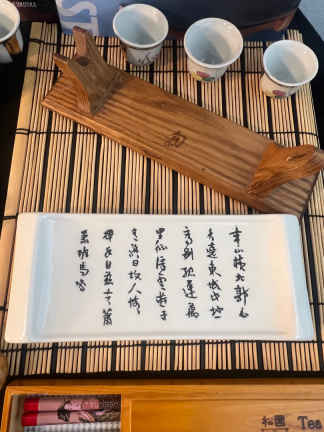 青山橫北郭白
水遶東城此地
一為別孤蓬萬
里征浮雲遊子
意落日故人情
揮手自茲去蕭
蕭班馬鳴
Tea